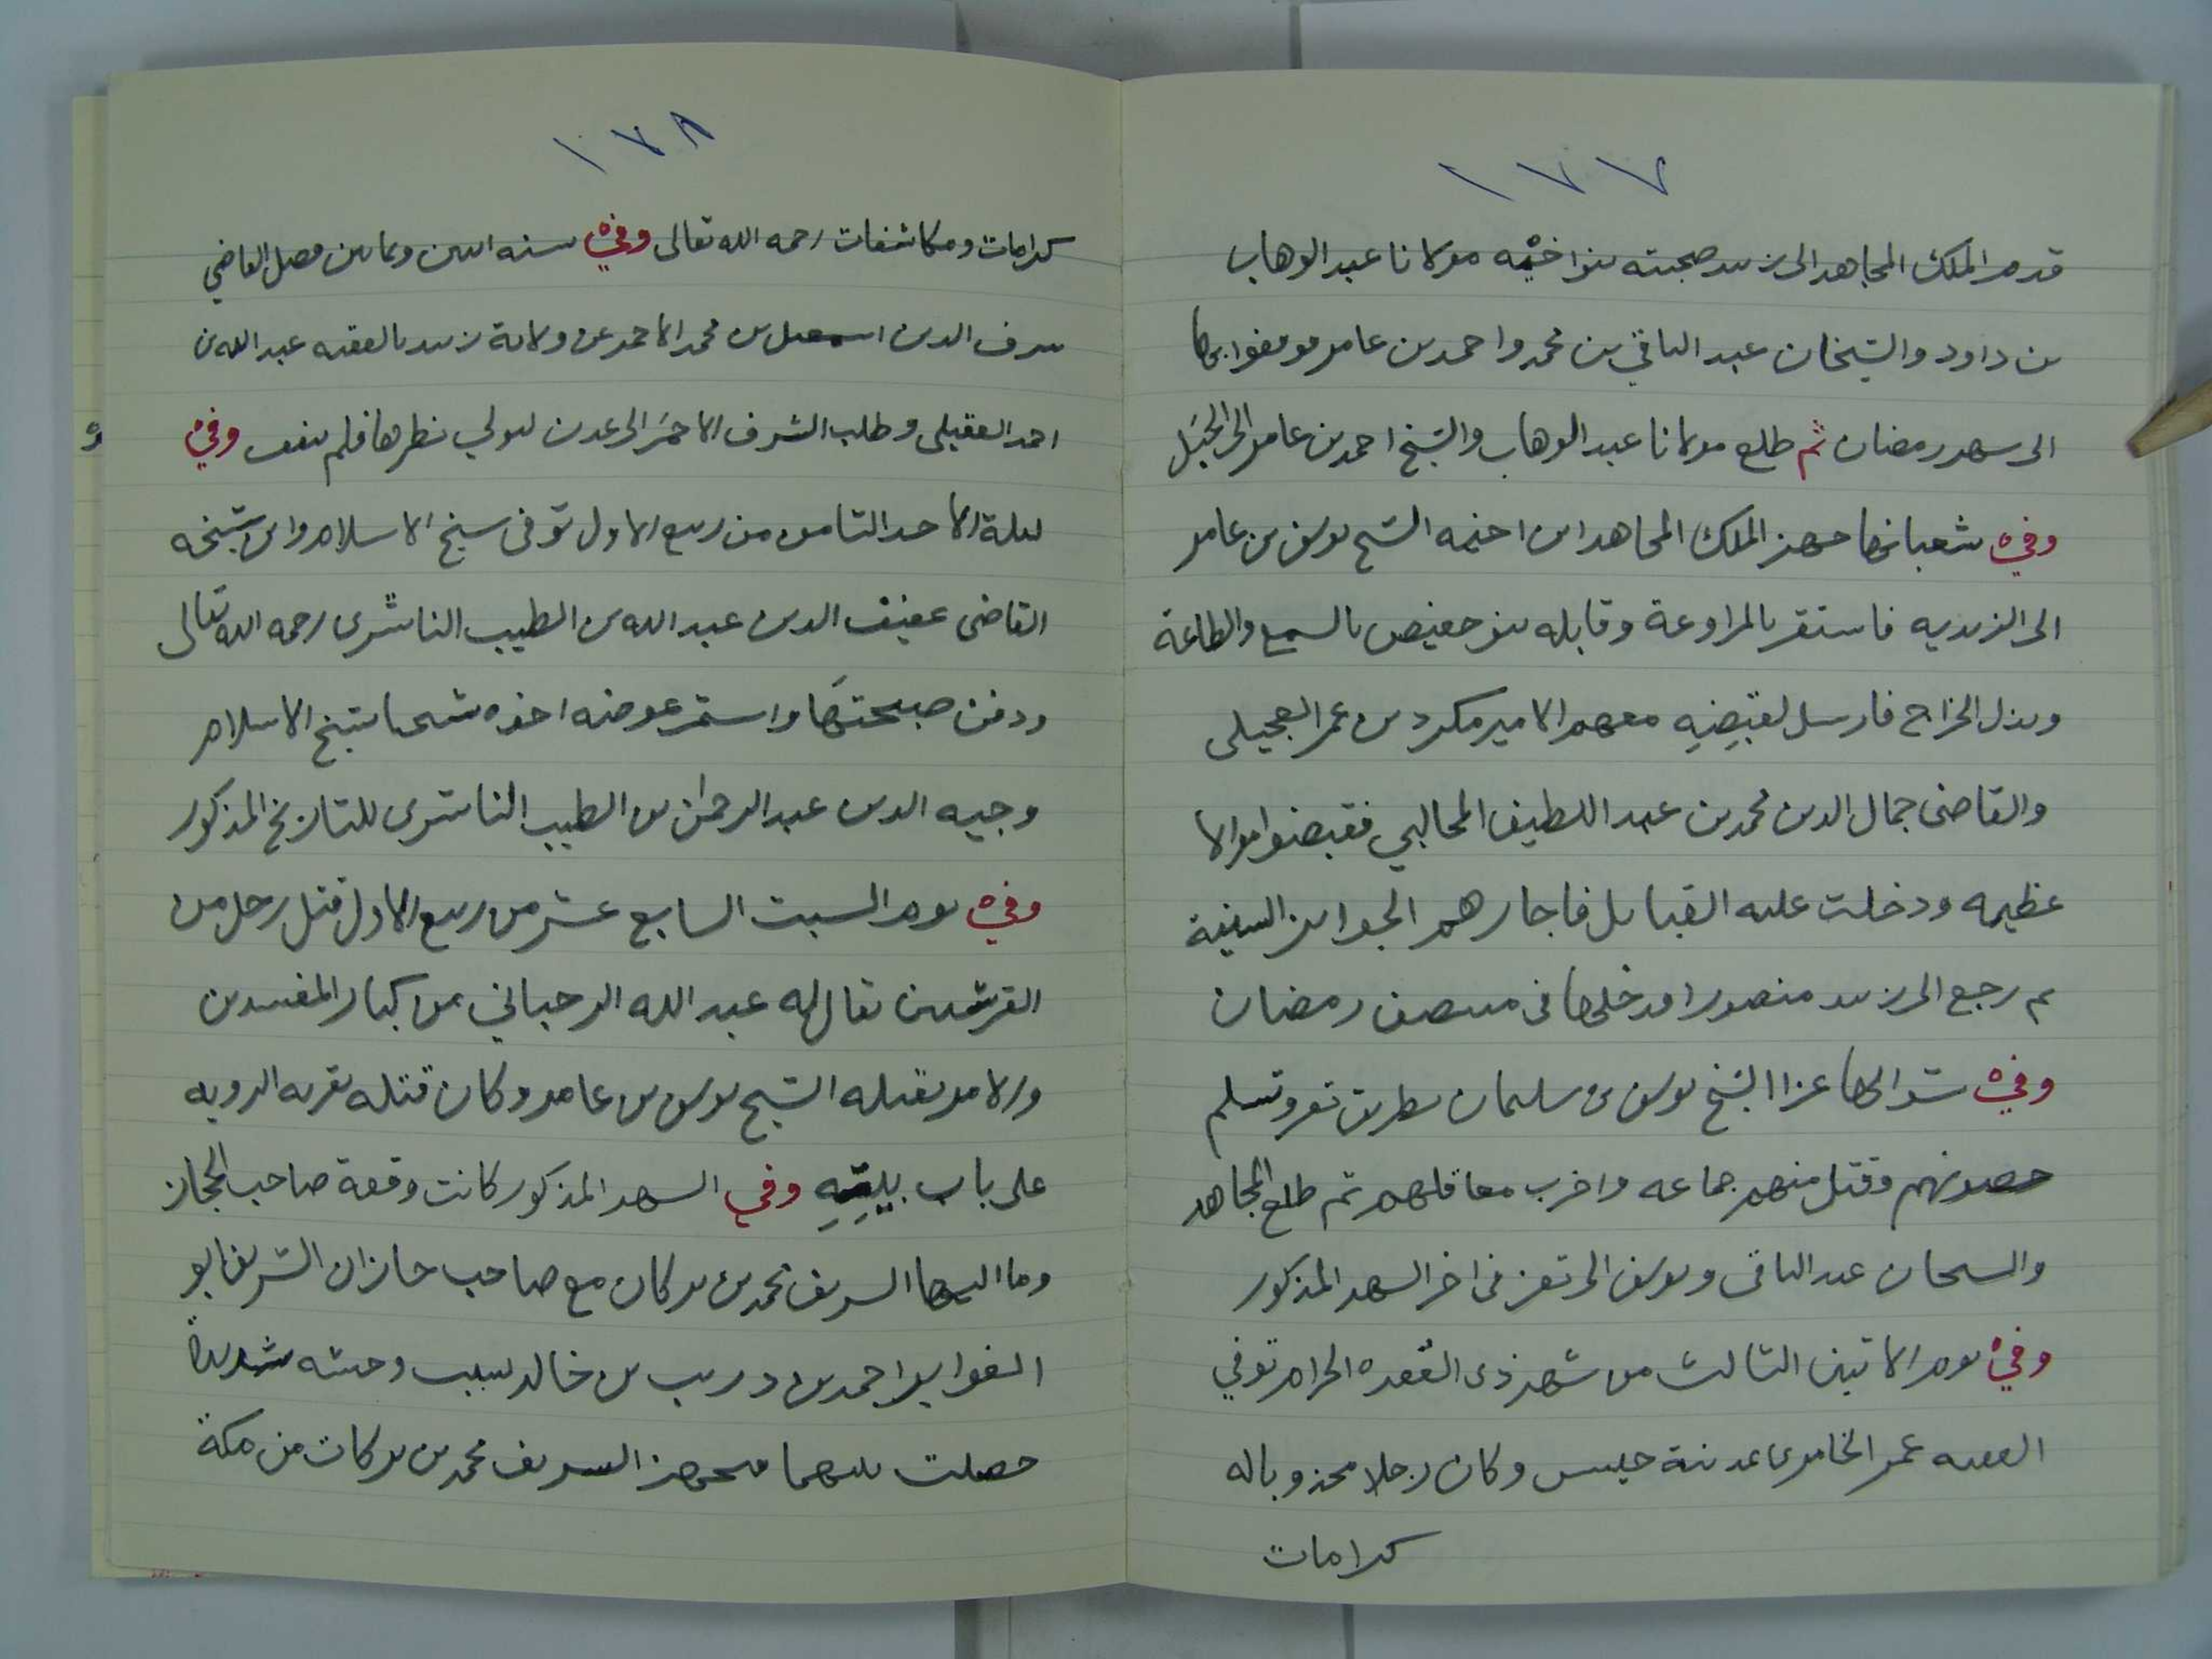 ١٧٧
قدم الملك المجاهد الى زبيد صحبته بنو اخيه مولانا عبد الوهاب
بن داود والشيخان عبد الباقي بن محمد واحمد بن عامر فوقفوا بها
الى شهر رمضان ثم طلع مولانا عبد الوهاب والشيخ احمد بن عامر الى الجبل
وفي شعبانها جهز الملك المجاهد ابن اخيه الشيخ يوسف بن عامر
الى الزيديه فاستقر بالمراوعة وقابله بنو حفيص بالسمع والطاعة
وبذل الخراج فارسل لقبضه معهم الامير مكرد بن عمر العجيلى
والقاضى جمال الدين محمد بن عبد اللطيف المحالبي فقبضوا اموالا
عظيمه ودخلت عليه القبايل فاجازهم الجوايز السنية
ثم رجع الى زبيد منصورا فدخلها فى منتصف رمضان
وفي شوالها غزا الشيخ يوسف بن سليمان بطريق تعز وتسلم
حصونهم وقتل منهم جماعه واخرب معاقلهم ثم طلع المجاهد
والشيخان عبد الباقى ويوسف الى تعز فى اخر الشهر المذكور
وفي يوم الاثنين الثالث من شهر ذى القعده الحرام توفي
الفقيه عمر الخامرى بمدينة حيس وكان رجلا مجذوبا له
كرامات
١٧٨
كرامات ومكاشفات رحمه الله تعالى وفي سنه اثنين وثمانين فصل القاضي
شرف الدين اسمعيل بن محمد الاحمر عن ولاية زبيد بالفقيه عبد الله بن
احمد العقيلى وطلب الشرف الاحمر الى عدن ليولي نظرها فلم يتفق وفي
ليلة الاحد الثامن من ربيع الاول توفى شيخ الاسلام وابن شيخه
القاضى عفيف الدين عبد الله بن الطيب الناشرى رحمه الله تعالى
ودفن صبيحتها واستمر عوضه اخوه شيخنا شيخ الاسلام
وجيه الدين عبد الرحمن بن الطيب الناشرى للتاريخ المذكور
وفي يوم السبت السابع عشر من ربيع الاول قتل رجل من
القرشيين يقال له عبد الله الرحباني من كبار المفسدين
والامر بقتله الشيخ يوسف بن عامر وكان قتله بقريه الدويه
على باب بيته وفي الشهر المذكور كانت وقعة صاحب الحجاز
وما اليها الشريف محمد بن بركات مع صاحب جازان الشريف ابو
الغواير احمد بن دريب بن خالد بسبب وحشه شديدة
حصلت بينهما فتجهز الشريف محمد بن بركات من مكة